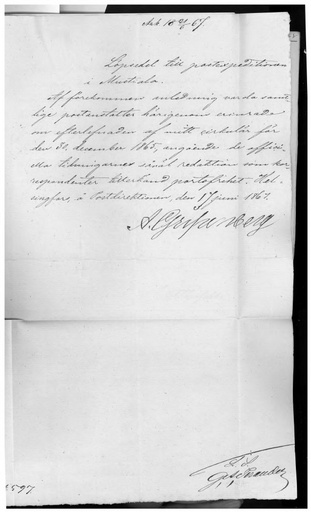 Löpsedel till postexpeditionen
i Mustiala.
Af förekommen anledning varda samt-
lige postanstalter härigenom erinrade
om efterlefnaden af mitt cirkulär för
den 30 december 1865, angående de offici-
ella tidningarnes såväl redaktion som kor-
respondenter tillerkänd portofrihet. Hel-
singfors, å Postdirektionen, den 17 juni 1867.
A. Gripenberg
1597